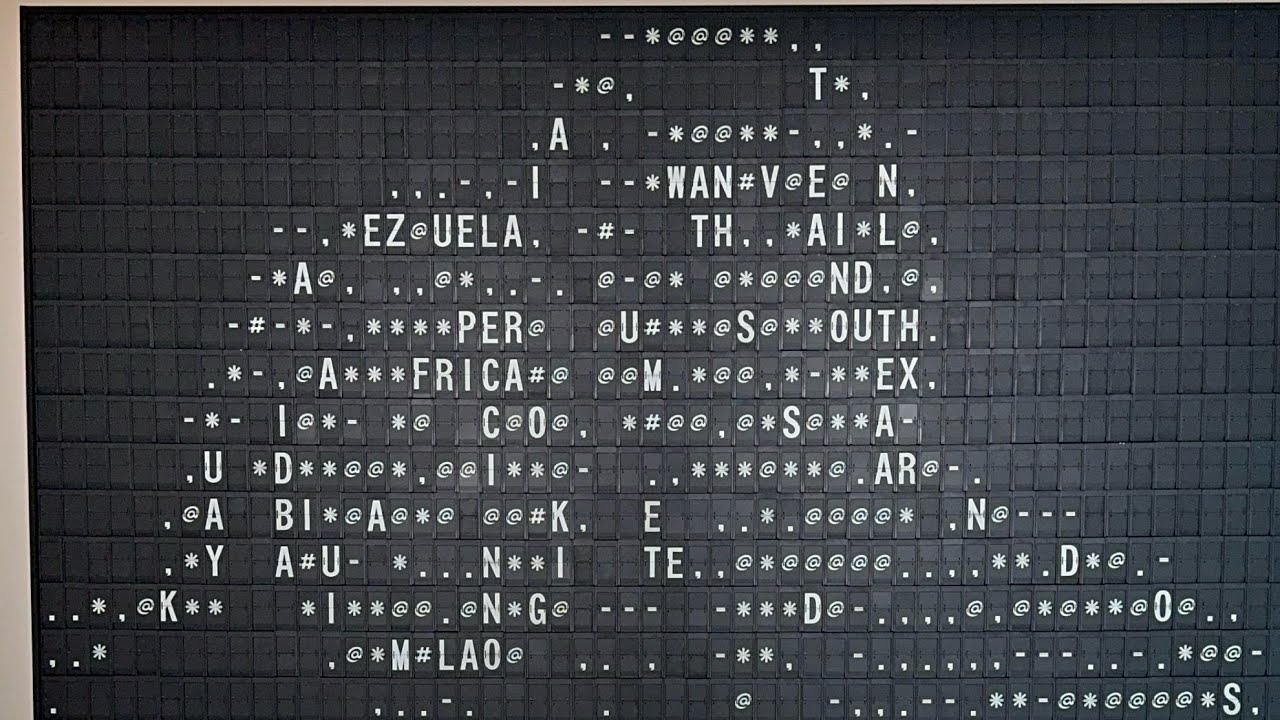 --*@@@**,,
-*@, T*,
,A , -*@@**-,,*.-
,,,-,-I --*WAN#V@E@ N,
--,*EZ@UELA, -#- TH,,*AI*L@,
-*A@, ,,@*,.-. @-@* @*@@@ND,@,
-#-*-,****PER@ @U#**@S@**OUTH.
.*-,@A***FRICA#@ @@M.*@@,*-**EX,
-*- I@*- *@ C@O@, *#@@,@*S@**A-
,U *D**@@*,@@I**@- .,***@**@.AR@-.
,@A BI*@A@*@ @@#K, E ,.*.@@@@* ,N@---
,*Y A#U- *...N**I TE,,@*@@@@@..,,**.D*@.-
..*,@K** *I**@@.@N*G@ --- -***D@-.,,,,@,@*@**@O@.,
,.* ,@*M#LAO@ ,. , -**, -.,,,,,---..-.*@@-
. ,..-. . @ -,,--.**-@*@@@@*S,